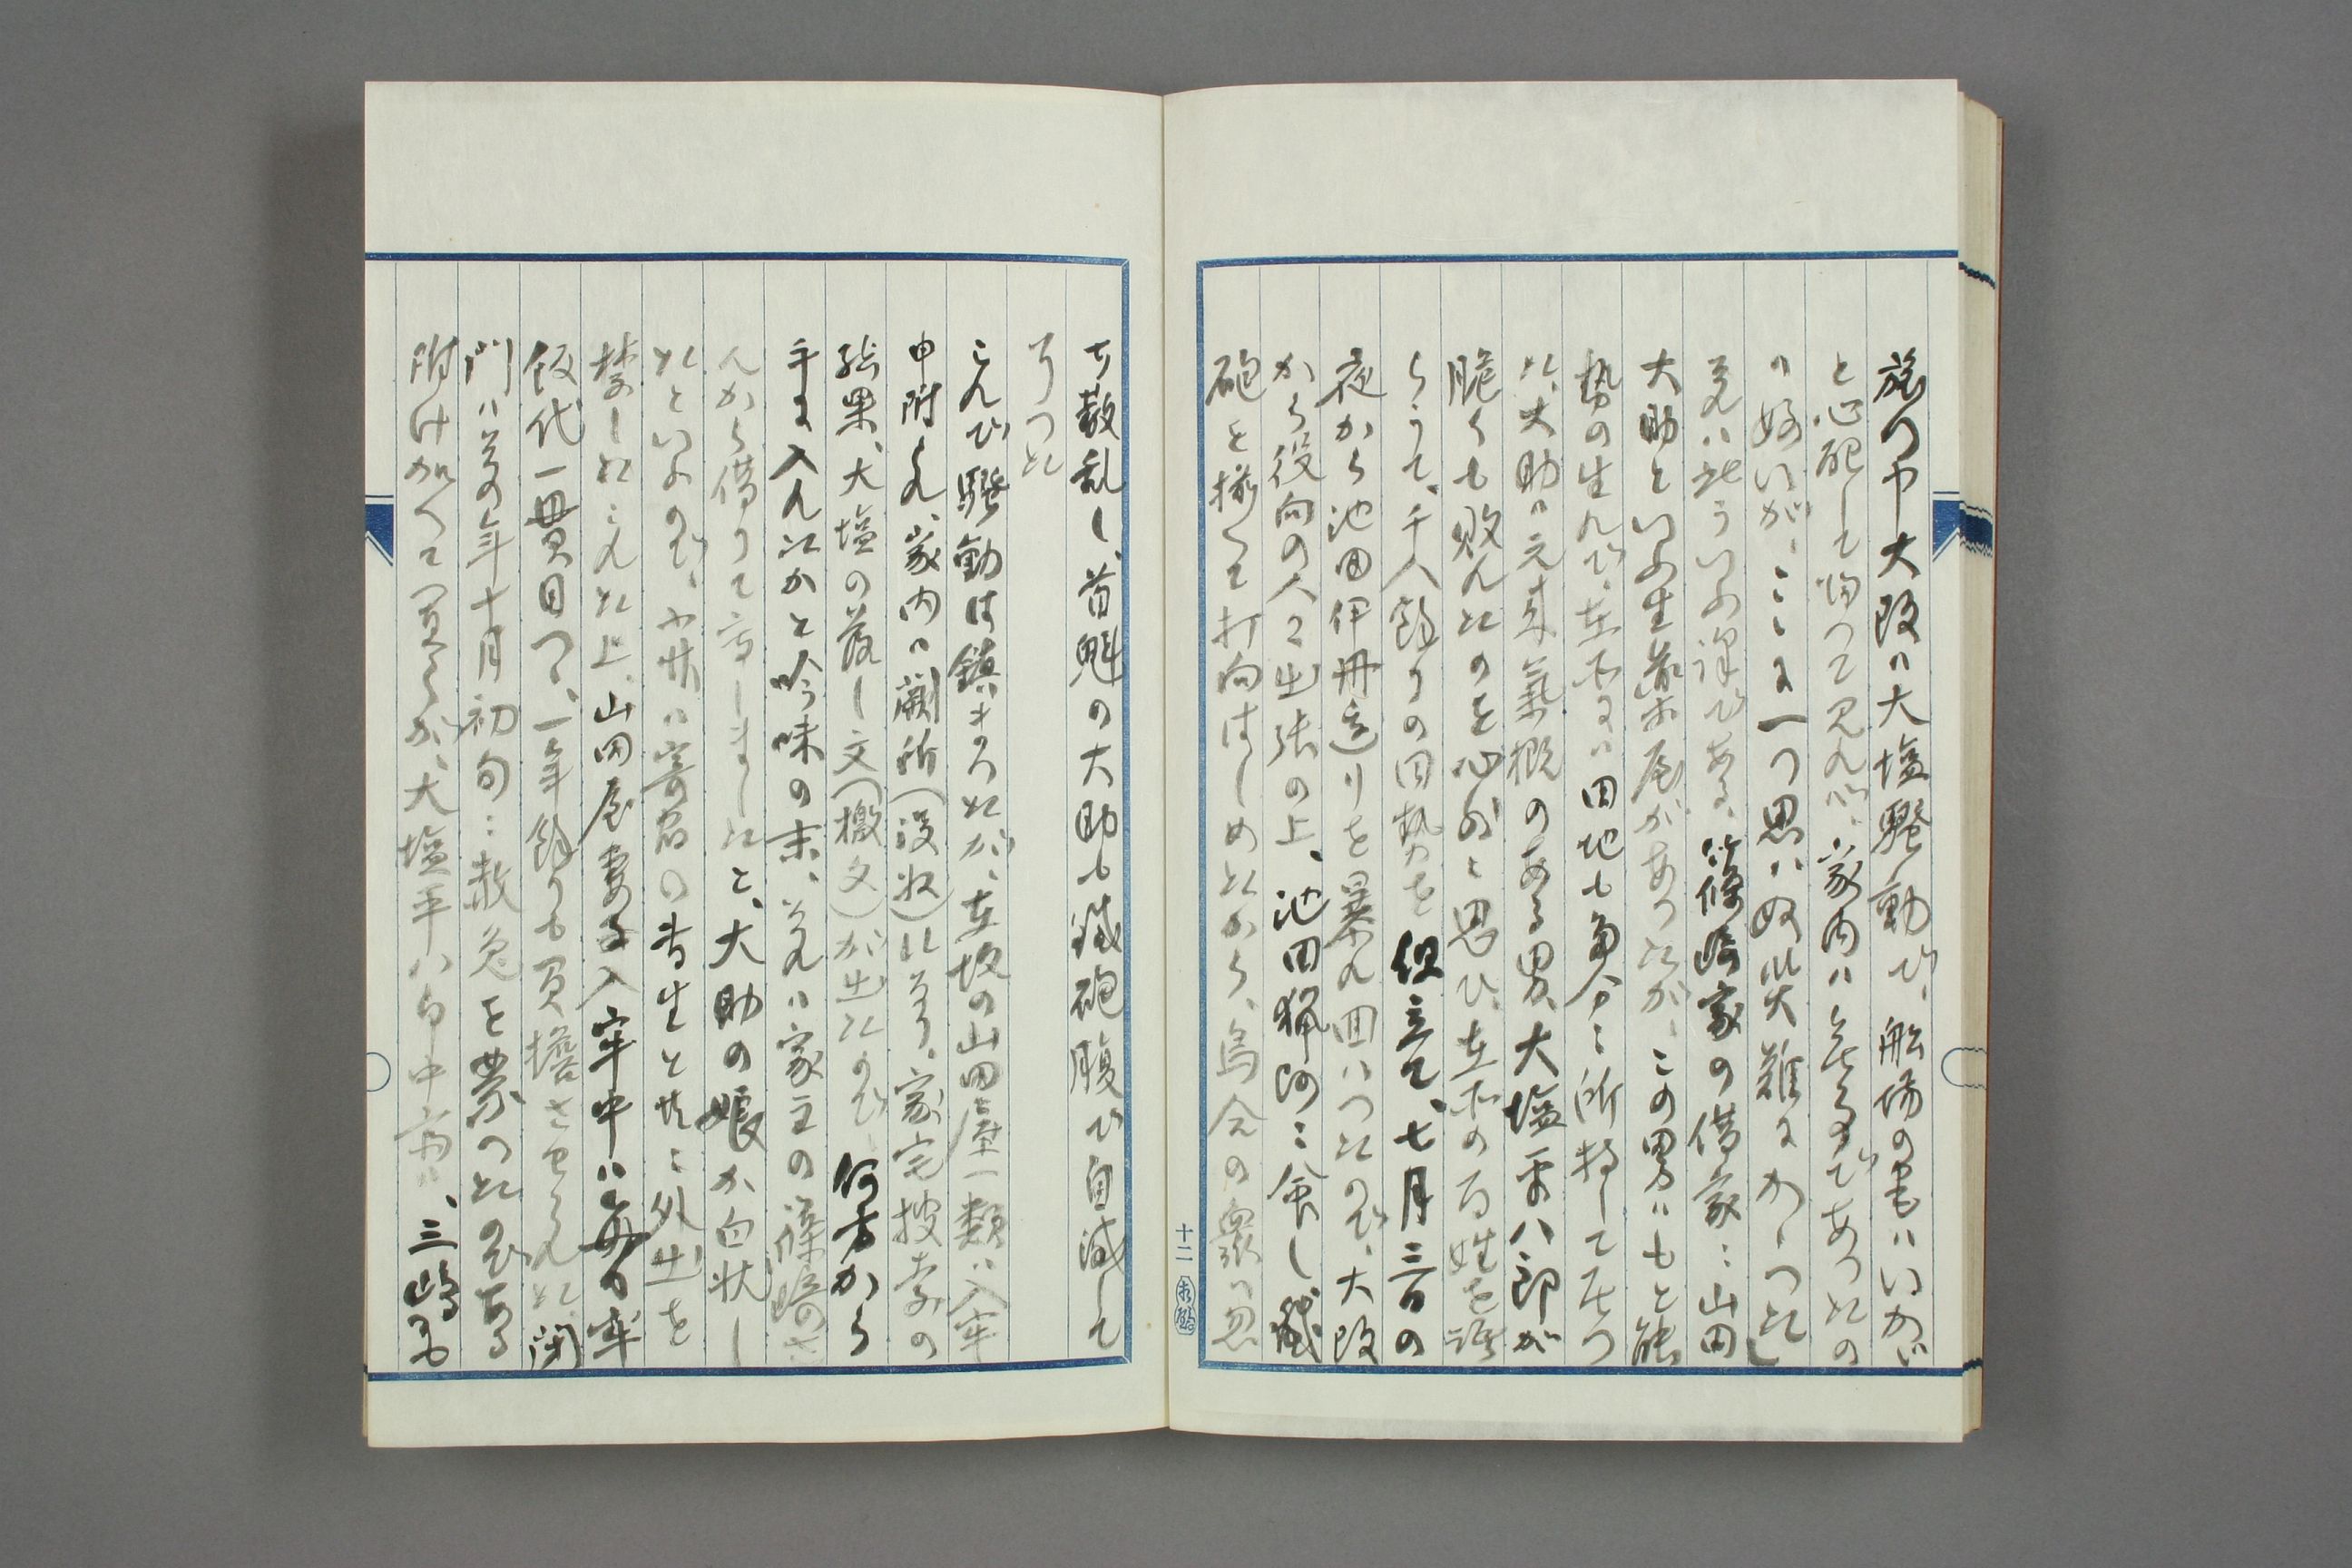 旅つ中大阪は大塩騒動で、船場の宅はいかが
と心配して帰つて見れば、家内は無事であつたの
は好いが、ここに一つ思はぬ災難にかかつた
夫れは斯ういふ訳である、篠崎家の借家に山田
大助といふ生薬屋があつたが、この男はもと能
勢の生れで、在所には田地も角分に所持して居つ
た、大助は元来気概のある男、大塩平八郎が
脆くも敗れたのを心外と思ひ、在所の百姓を語
らうて、千人余りの同勢を组立て、七月三日の
夜から池田伊丹辺りを暴れ回はつたので、大阪
から役向の人々出張の上、池田猟師に命し鉄
砲を揃へて打向はしめたから、烏合の衆は忽
ち散乱し、首魁の大助も鉄砲腹で自滅して
了つた
これで騒動は鎮まつたが、在坂の山田屋一類は入牢
申附られ、家内は闕所（没収）になり、家宅捜索の
結果、大塩の落し文（檄文）が出たので、何方から
手に入れたかと吟味の末、夫れは家主の篠崎さ
んから借りて写しましたと、大助の娘が白状し
たといふので、小竹は寄宿の書生と共に外出を
禁しられた上、山田屋妻子入牢中は毎日牢
飯代一貫目つつ、一年余りも負担させられた、閉
門は翌年十月初旬に赦免を蒙つたのである
附け加へて置くが、大塩平八郎中斎は、三島